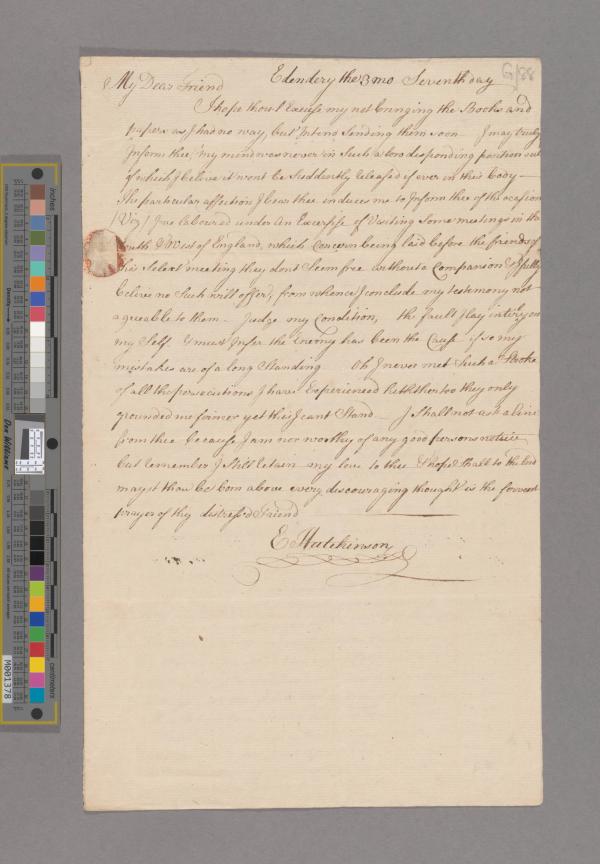 G/88
Edendery the 3 mo Seventh day
My Dear Friend
I hope thou'l Excuse my not bringing the Books and
papers as I had no way, but Intend Sending them soon I may truly
Inform thee, my mind was never in Such a low disponding position out
of which I believe it wont be Suddently releas'd if ever in this body
The particular affection I bear thee induces me to Inform thee of the occasion
(Viz) I've laboured under an Exercise of Visiting Some meetings in the
South & West of England, which Concern being laid before the friends of
this Select meeting they dont Seem free without a Companion & I fully
believe no Such will offer, from whence I conclude my testimony not
agreable to them Judge my Condition, the fault I lay intirely on
my Self I must Infer the Enemy has been the Cause if so my
mistakes are of a long Standing Oh I never met Such a
of all the persecutions I have Experienced heththertoo they only
me former yet this I cant Stand I Shall not ask a line
from thee because I am nor worthy of any good persons notice
but remember I Still retain my love to thee & hope shall to the End
mayst thou be born above every discouraging thought is the fervent
prayer of thy distressd Friend
E Hutchinson
inches
centimeters
Don Williams
M001378